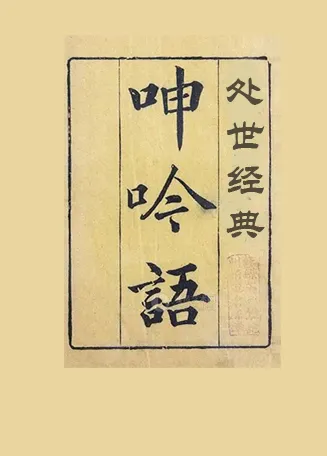 处世经典
呻吟語